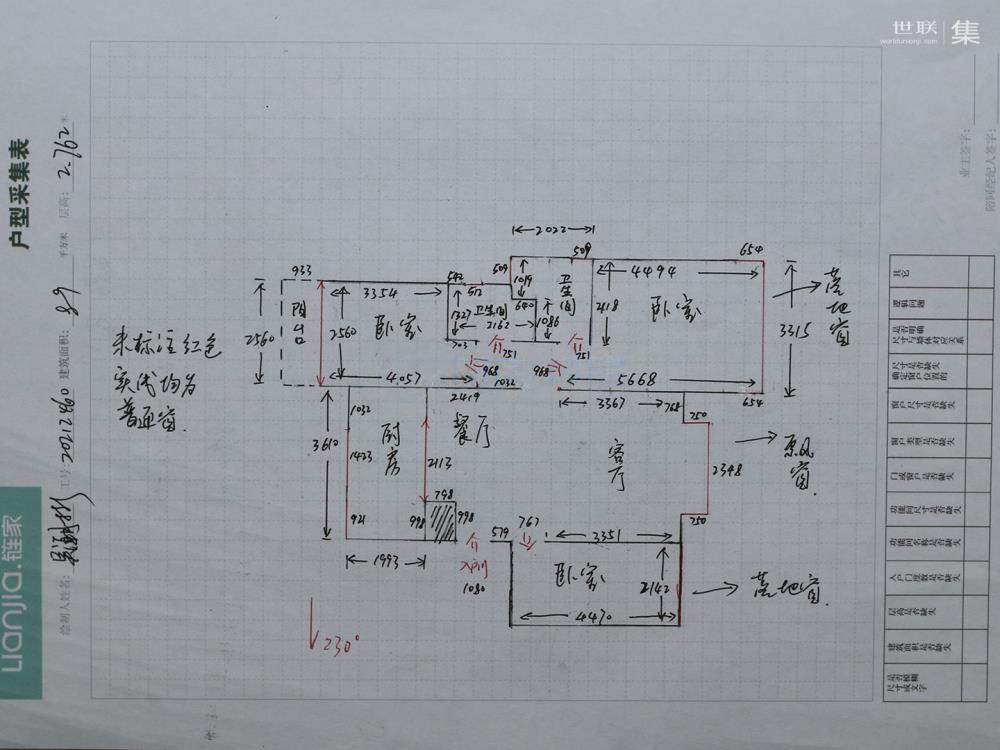 世联
worldunionji.com
集
户型采集表
层高: 2.762 米
建筑面积: 89 平方米
工号: 20212460
绘制人姓名:
Lianjia.链家
未标注红色
实线均为
普通窗.
2022
509
509
654
933
542
512
1019
卫生间
4494
落地窗
3354
阳台
卧室
1327
卫生间
640
2418
卧室
3315
2560
2560
2162
1086
703
751
751
968
968
4057
1032
5668
2419
3367
768
654
750
1032
厨房
餐厅
客厅
飘风窗.
3610
1423
2113
2348
798
921
998
998
750
579
767
3351
入户门
1993
1080
卧室
2142
落地窗.
4470
230°
业主签字:
陪同经纪人签字:
其它
逻辑问题
是否明确尺寸与墙体对应关系
尺寸是否缺失确定窗户位置的
窗户尺寸是否缺失
窗户类型是否缺失
门或窗户是否缺失
功能间尺寸是否缺失
功能间名称是否缺失
入户门度数是否缺失
层高是否缺失
建筑面积是否缺失
是否模糊尺寸或文字